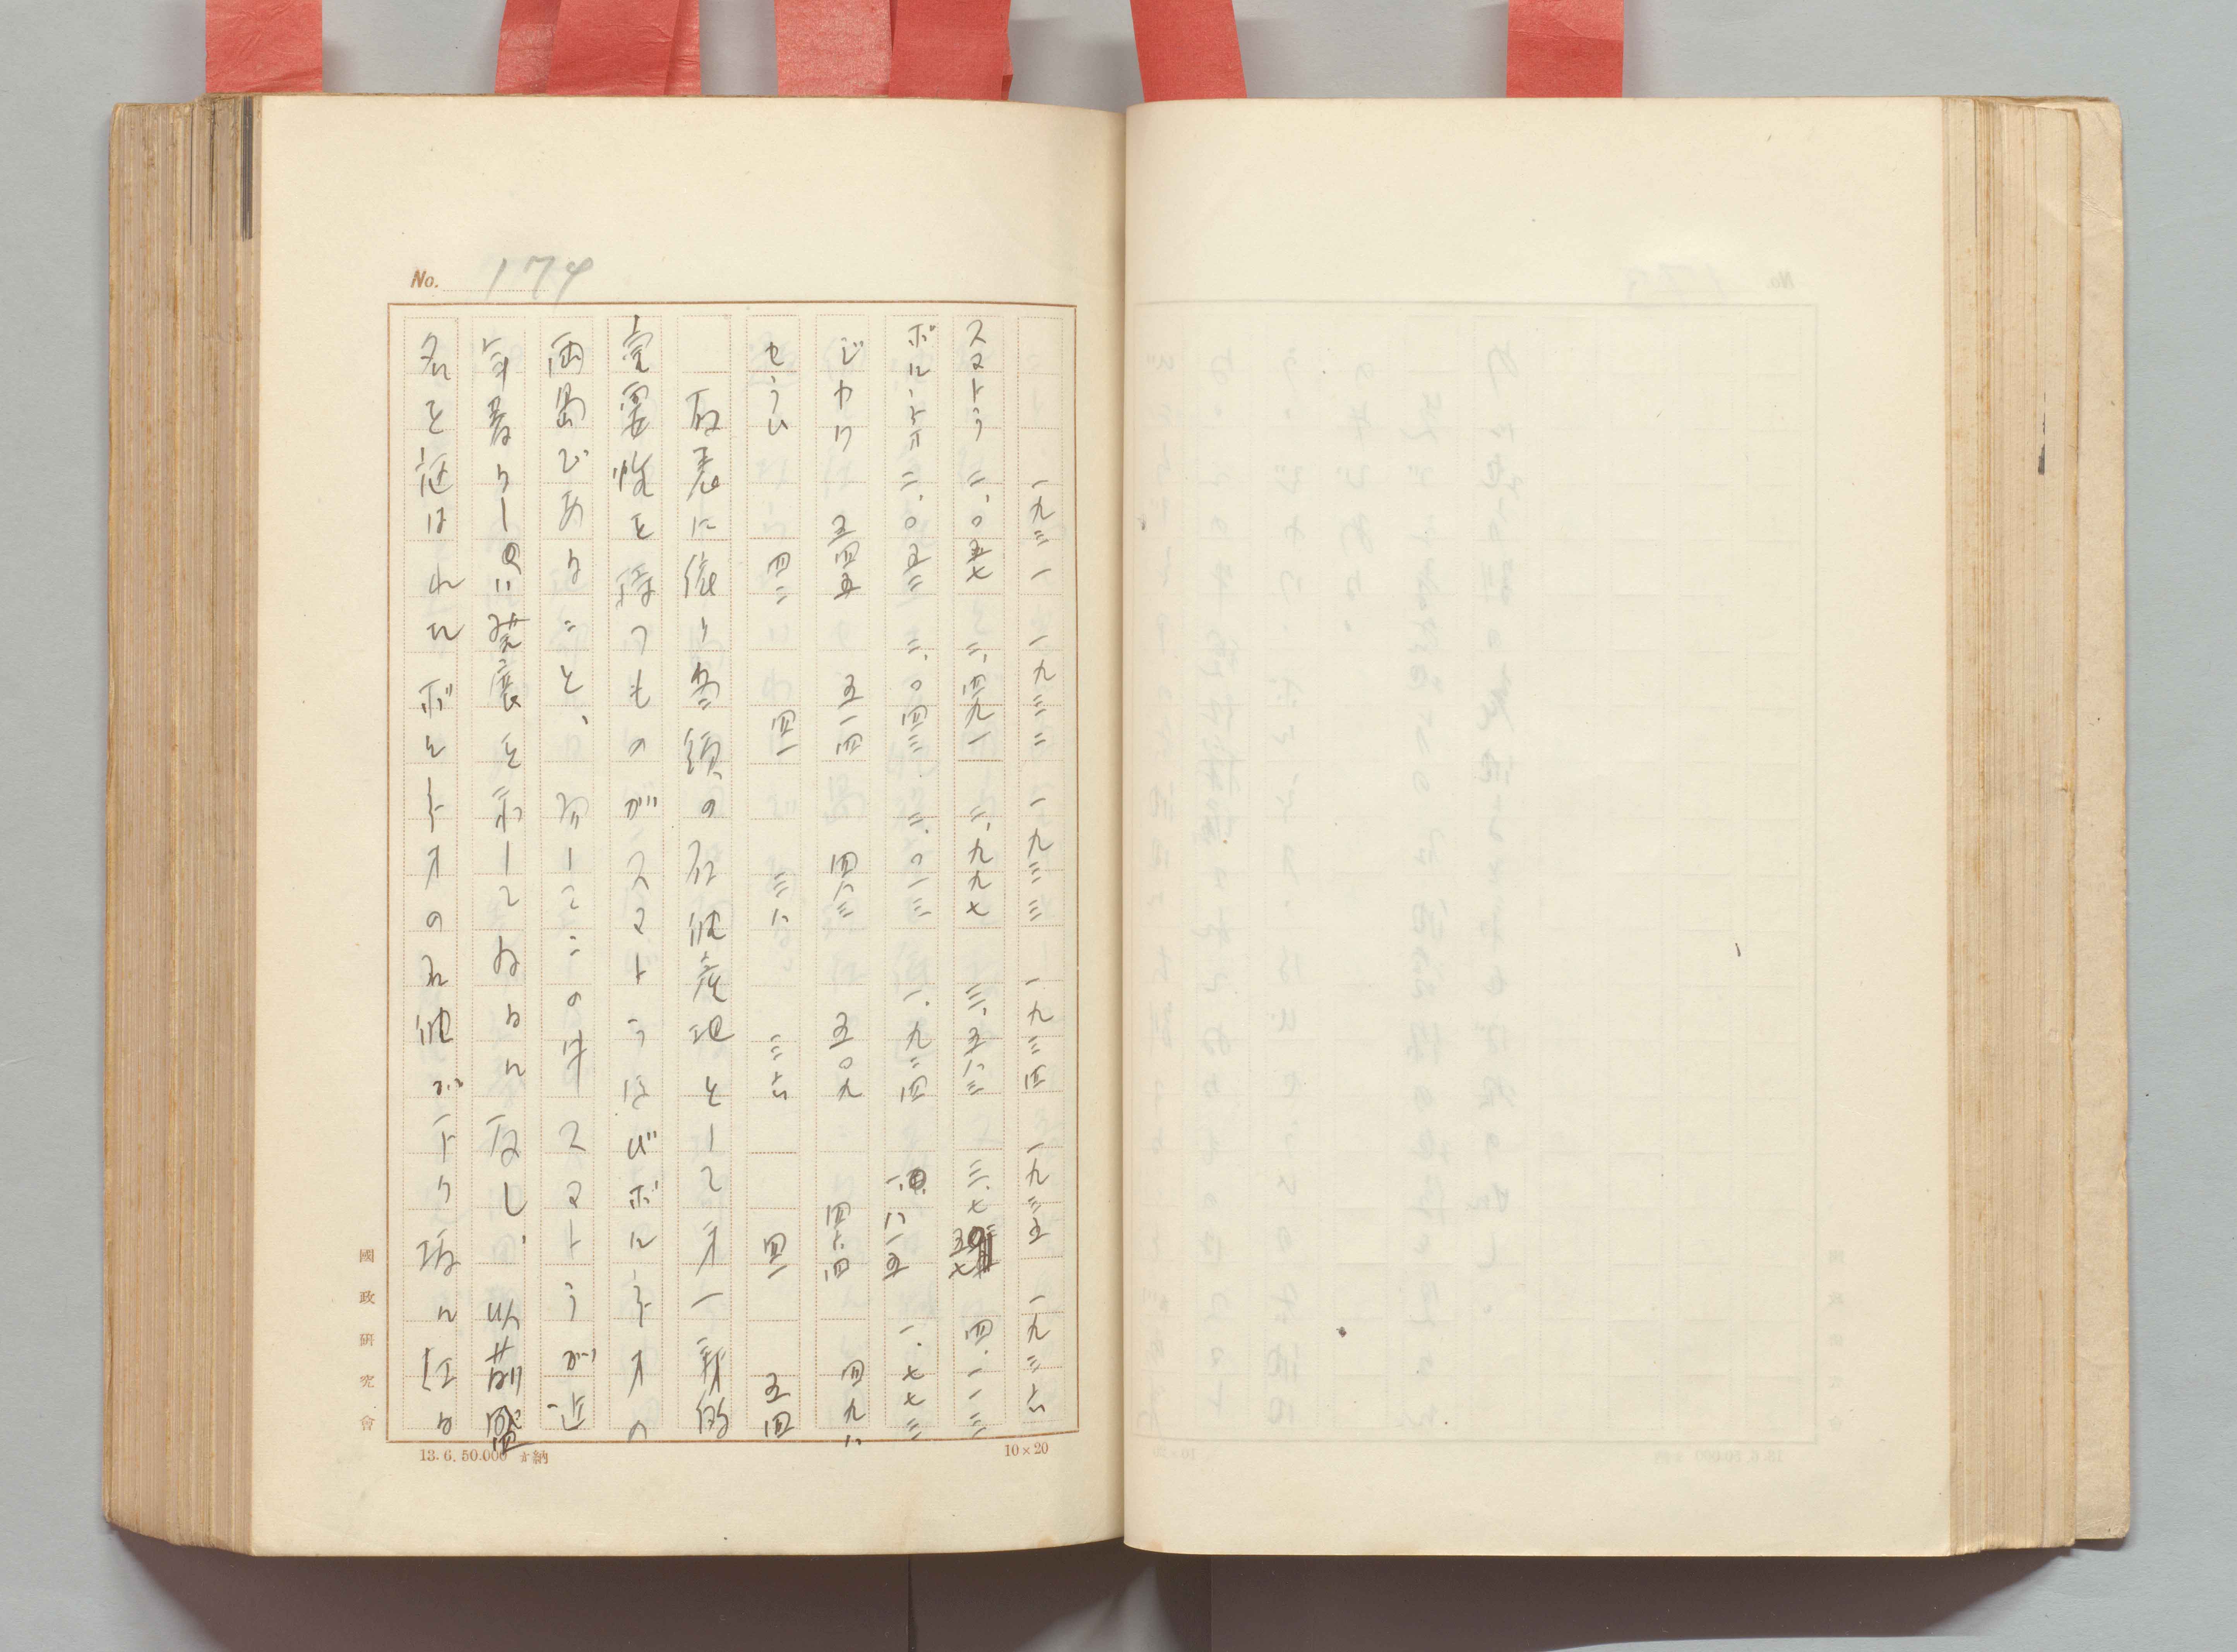 No. 174
一九三一　一九三二　一九三三　一九三四　一九三五　一九三六
スマトラ　二、〇五七　二、四九一　二、九九七　三、五八三　三、七五七　四、一一三
ボルネオ　二、〇五二　二、〇四三　二、〇一三　一、九二四　一、八一五　一、七七三
ジヤワ　五四五　五一四　四八三　五〇九　四六四　四九八
セラム　四二　四一　三八　三六　四一　五四
右表に依り各領の石油産地として才一義的
重要性を持つものがスマトラ及びボルネオの
両島であること、而してこの中スマトラが近
年著しい発展を示してゐるに反し、以前
名を謳はれたボルネオの石油が下り坂に在る
國政研究會
13. 6. 50.000 ｵ納
10×20